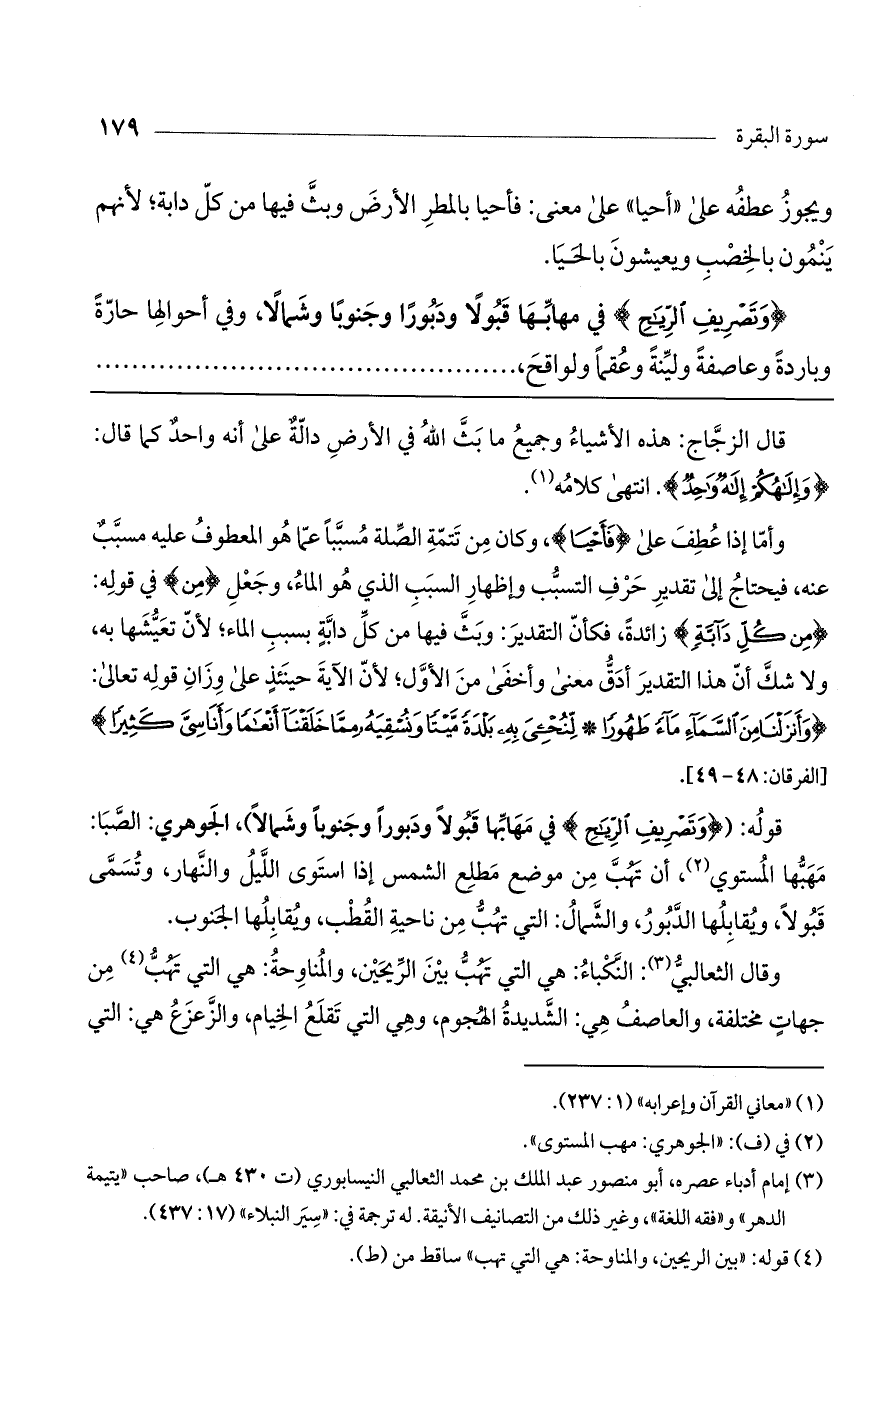 سورة البقرة ١٧٩
ويجوزُ عطفُه علىٰ «أحيا» علىٰ معنى: فأحيا بالمطرِ الأرضَ وبثَّ فيها من كلّ دابة؛ لأنهم
يَنْمُون بالخِصْبِ ويعيشونَ بالحَيَا.
﴿وَتَصْرِيفِ ٱلرِّيَـٰحِ﴾ في مهابِّـهَا قَبُولًا ودَبُورًا وجَنوبًا وشَمالًا، وفي أحوالها حارّةً
وباردةً وعاصفةً وليِّنةً وعُقماً ولواقحَ،..............................................
قال الزجَّاج: هذه الأشياءُ وجميعُ ما بَثَّ اللهُ في الأرضِ دالّةٌ علىٰ أنه واحدٌ كما قال:
﴿وَإِلَـٰهُكُمْ إِلَـٰهٌ وَٰحِدٌ﴾. انتهىٰ كلامُه(١).
وأمّا إذا عُطِفَ علىٰ ﴿فَأَحْيَـا﴾، وكان مِن تَتمّةِ الصِّلة مُسبَّباً عمّا هُو المعطوفُ عليه مسبَّبٌ
عنه، فيحتاجُ إلىٰ تقديرِ حَرْفِ التسبُّب وإظهارِ السبَبِ الذي هُو الماءُ، وجَعْلِ ﴿مِن﴾ في قولِه:
﴿مِن كُلِّ دَآبَّةٍ﴾ زائدةً، فكأنّ التقديرَ: وبَثَّ فيها من كلِّ دابَّةٍ بسببِ الماء؛ لأنّ تعَيُّشَها به،
ولا شكَّ أنّ هذا التقديرَ أدَقُّ معنىٰ وأخفَىٰ منَ الأوَّل؛ لأنّ الآيةَ حينَئذٍ علىٰ وِزَانِ قولِه تعالىٰ:
﴿وَأَنزَلْنَا مِنَ ٱلسَّمَآءِ مَآءً طَهُورًا * لِّنُحْـِۧىَ بِهِۦ بَلْدَةً مَّيْتًا وَنُسْقِيَهُۥ مِمَّا خَلَقْنَآ أَنْعَـٰمًا وَأَنَاسِىَّ كَثِيرًا﴾
[الفرقان: ٤٨-٤٩].
قولُه: (﴿وَتَصْرِيفِ ٱلرِّيَـٰحِ﴾ في مَهَابِّها قَبُولاً ودَبوراً وجَنوباً وشَمالاً)، الجَوهري: الصَّبَا:
مَهَبُّها المُستوي(٢)، أن تَهُبَّ مِن موضع مَطلِع الشمس إذا استَوى اللَّيلُ والنَّهار، وتُسَمَّى
قَبُولاً، ويُقابِلُها الدَّبُورُ، والشَّمالُ: التي تَهُبُّ مِن ناحيةِ القُطْب، ويُقابِلُها الجَنوب.
وقال الثعالبيُّ(٣): النَّكْباءُ: هي التي تَهُبُّ بيْنَ الرِّيحَيْن، والمُناوِحةُ: هي التي تَهُبُّ(٤) مِن
جهاتٍ مختلفة، والعاصفُ هِي: الشَّديدةُ الهُجوم، وهِي التي تَقلَعُ الخِيام، والزَّعزَعُ هي: التي
(١) «معاني القرآن وإعرابه» (١: ٢٣٧).
(٢) في (ف): «الجوهري: مهب المستوى».
(٣) إمام أدباء عصره، أبو منصور عبد الملك بن محمد الثعالبي النيسابوري (ت ٤٣٠ هـ)، صاحب «يتيمة
الدهر» و«فقه اللغة»، وغير ذلك من التصانيف الأنيقة. له ترجمة في: «سِيَر النبلاء» (١٧: ٤٣٧).
(٤) قوله: «بين الريحين، والمناوحة: هي التي تهب» ساقط من (ط).